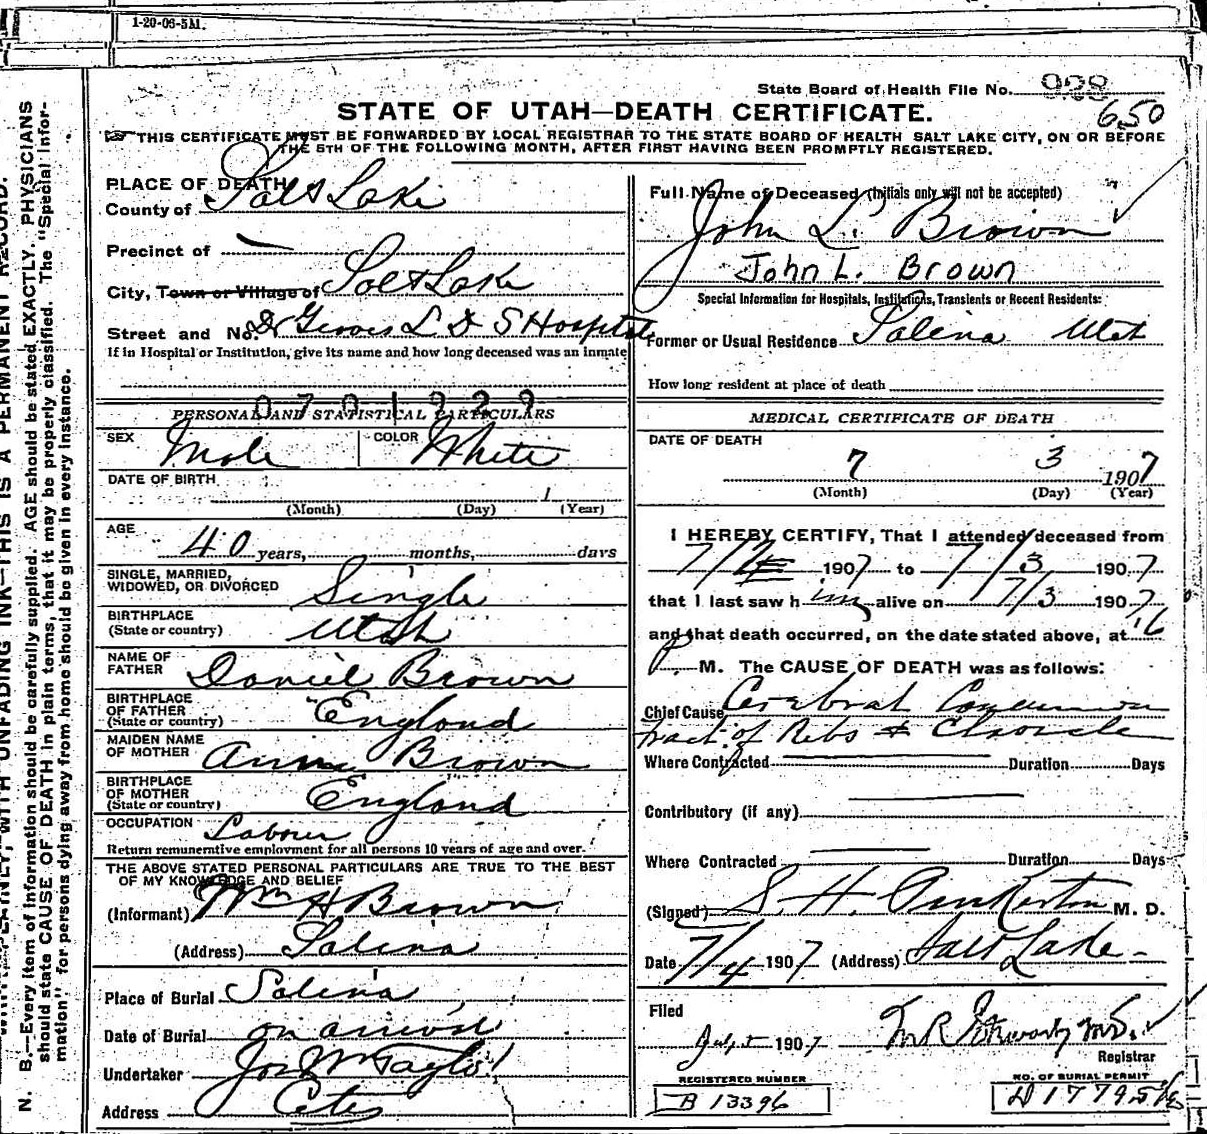 1-20-06-5M.
State Board of Health File No. 928
650
STATE OF UTAH—DEATH CERTIFICATE.
THIS CERTIFICATE MUST BE FORWARDED BY LOCAL REGISTRAR TO THE STATE BOARD OF HEALTH SALT LAKE CITY, ON OR BEFORE
THE 5TH OF THE FOLLOWING MONTH, AFTER FIRST HAVING BEEN PROMPTLY REGISTERED.
PLACE OF DEATH
County of Salt Lake
Precinct of —
City, Town or Village of Salt Lake
Street and No. L D S Hospital
If in Hospital or Institution, give its name and how long deceased was an inmate
0701929
PERSONAL AND STATISTICAL PARTICULARS
SEX Male COLOR White
DATE OF BIRTH 1
(Month) (Day) (Year)
AGE 40 years, months, days
SINGLE, MARRIED,
WIDOWED, OR DIVORCED Single
BIRTHPLACE
(State or country) Utah
NAME OF
FATHER Daniel Brown
BIRTHPLACE
OF FATHER
(State or country) England
MAIDEN NAME
OF MOTHER Brown
BIRTHPLACE
OF MOTHER
(State or country) England
OCCUPATION Labour
Return remunerative employment for all persons 10 years of age and over.
THE ABOVE STATED PERSONAL PARTICULARS ARE TRUE TO THE BEST
OF MY KNOWLEDGE AND BELIEF
(Informant) Wm H Brown
(Address) Salina
Place of Burial Salina
Date of Burial on arrival
Undertaker Jos Wm Taylor
Address City
Full Name of Deceased (Initials only will not be accepted)
John L. Brown
John L. Brown
Special Information for Hospitals, Institutions, Transients or Recent Residents:
Former or Usual Residence Salina Utah
How long resident at place of death
MEDICAL CERTIFICATE OF DEATH
DATE OF DEATH
7 3 1907
(Month) (Day) (Year)
I HEREBY CERTIFY, That I attended deceased from
7/2 1907 to 7/3 1907
that I last saw him alive on 7/3 1907
and that death occurred, on the date stated above, at
P M. The CAUSE OF DEATH was as follows:
Chief Cause Cerebral
fract. of Ribs & Clavicle
Where Contracted Duration Days
Contributory (if any)
Where Contracted Duration Days
(Signed) S. H. Pinkerton M. D.
Date 7/4 1907 (Address) Salt Lake
Filed
July 5 1907
Registrar
REGISTERED NUMBER
B 13396
NO. OF BURIAL PERMIT
N. B.—Every item of information should be carefully supplied. AGE should be stated EXACTLY. PHYSICIANS
should state CAUSE OF DEATH in plain terms, that it may be properly classified. The "Special Infor-
mation" for persons dying away from home should be given in every instance.
WRITE PLAINLY, WITH UNFADING INK—THIS IS A PERMANENT RECORD.